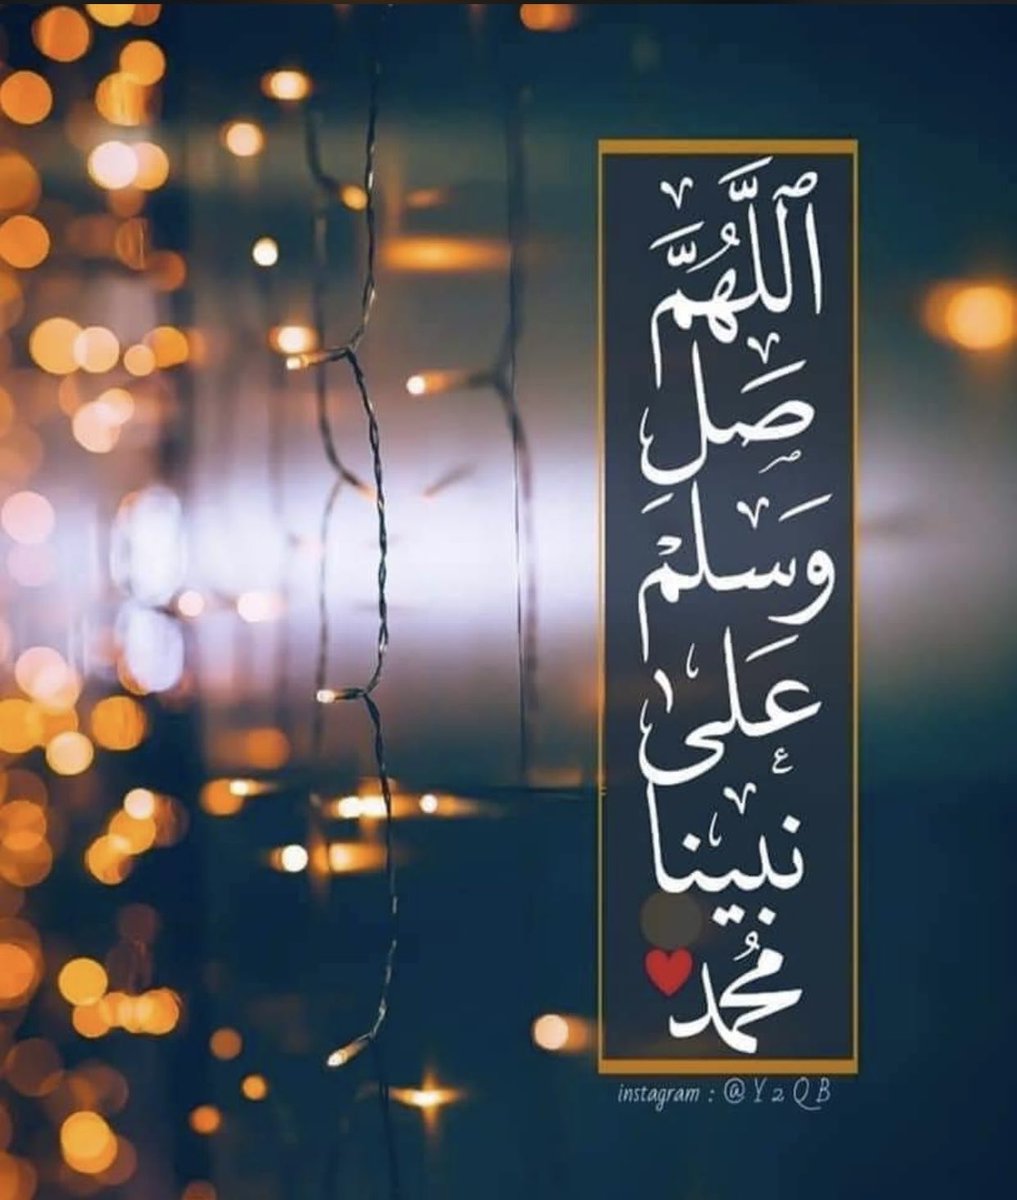 ٱللَّهُمَّ
صَلِّ
وَسَلِّمْ
عَلَىٰ
نبينا
مُحمد
instagram : @Y2QB